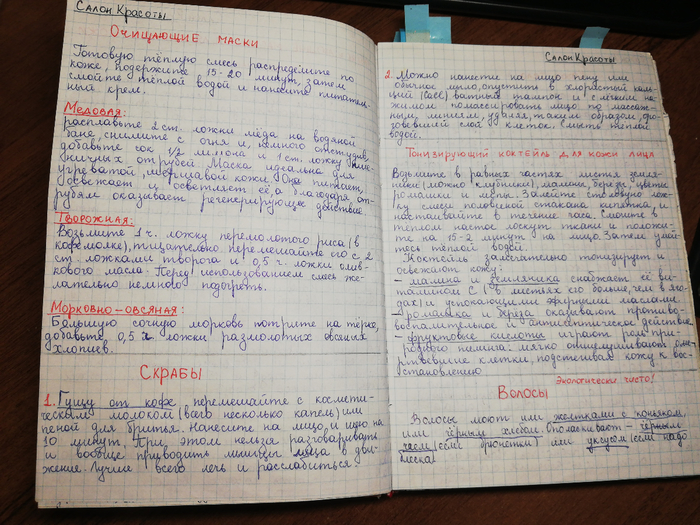 Салон Красоты
Очищающие маски
Готовую тёплую смесь распределите по
коже, подержите 15-20 минут, затем
смойте тёплой водой и нанесите питатель-
ный крем.
Медовая:
расплавьте 2 ст. ложки мёда на водяной
бане, снимите с огня и, немного остудив,
добавьте сок 1/2 лимона и 1 ст. ложку пше-
ничных отрубей. Маска идеальна для
угреватой, шершавой кожи. Она питает,
освежает и осветляет её, а благодаря от-
рубям оказывает регенерирующее действие.
Творожная:
Возьмите 1 ч. ложку перемолотого риса (в
кофемолке), тщательно перемешайте его с 2
ст. ложками творога и 0,5 ч. ложки олив-
кового масла. Перед использованием смесь же-
лательно немного подогреть.
Морковно-овсяная:
Большую сочную морковь потрите на тёрке,
добавьте 0,5 ложки размолотых овсяных
хлопьев.
Скрабы
1. Гущу от кофе перемешайте с космети-
ческим молоком (всего несколько капель) или
пеной для бритья. Нанесите на лицо и шею на
10 минут. При этом нельзя разговаривать
и вообще приводить мышцы лица в дви-
жение. Лучше всего лечь и расслабиться.
Салон Красоты
2. Можно нанести на лицо пену или
обычное мыло, опустить в хлористый каль-
ций (CaCl) ватный тампон и с лёгким на-
жимом помассировать лицо по массаж-
ным линиям, удаляя, таким образом, оро-
говевший слой клеток. Смыть тёплой
водой.
Тонизирующий коктейль для кожи лица
Возьмите в равных частях листья земля-
ники (можно клубники), малины, берёзы, цветы
ромашки и мелиссы. Залейте столовую лож-
ку смеси половиной стакана кипятка и
настаивайте в течение часа. Смочите в
тёплом настое лоскут ткани и положи-
те на 15-2 минут на лицо. Затем умой-
тесь тёплой водой.
Коктейль замечательно тонизирует и
освежают кожу:
- малина и земляника снабжает её ви-
тамином С (в листьях его больше, чем в яго-
дах) и успокаивающими эфирными маслами.
- ромашка и берёза оказывают противо-
воспалительное и антисептическое действие
- фруктовые кислоты играют роль при-
родного пилинга: мягко отшелушивают ом-
ертвевшие клетки, подстёгивая кожу к вос-
становлению
Экологически чисто!
Волосы
Волосы моют или желтками с коньяком,
или чёрным хлебом. Споласкивают – чёрным
чаем (если брюнетки) или уксусом (если надо
блеска)